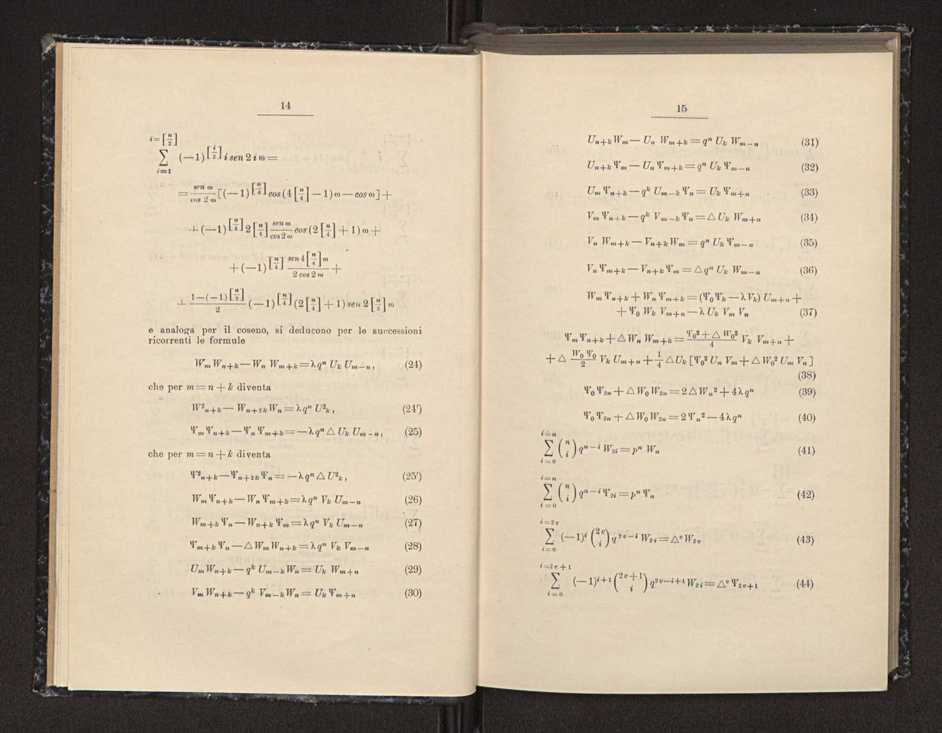 14
i=[n/2]
∑ (—1)^[i/2] i sen 2 i ω =
i=1
= sen ω / cos 2 ω [(—1)^[n/4] cos (4 [n/4] —1) ω — cos ω] +
+ (—1)^[n/4] 2 [n/4] sen ω / cos 2 ω cos (2 [n/4] + 1) ω +
+ (—1)^[n/4] sen 4 [n/4] ω / 2 cos 2 ω +
(—1)^[n/4] (2 [n/4] + 1) sen 2 [n/4] ω
e analoga per il coseno, si deducono per le successioni
ricorrenti le formule
W_m W_{n+k} — W_n W_{m+k} = λ q^n U_k U_{m—n}, (24)
che per m = n + k diventa
W²_{n+k} — W_{n+2k} W_n = λ q^n U²_k, (24')
Ψ_m Ψ_{n+k} — Ψ_n Ψ_{m+k} = — λ q^n △ U_k U_{m—n}, (25)
che per m = n + k diventa
Ψ²_{n+k} — Ψ_{n+2k} Ψ_n = — λ q^n △ U²_k, (25')
W_m Ψ_{n+k} — W_n Ψ_{m+k} = λ q^n V_k U_{m—n} (26)
W_{m+k} Ψ_n — W_{n+k} Ψ_m = λ q^n V_k U_{m—n} (27)
Ψ_{m+k} Ψ_n — △ W_m W_{n+k} = λ q^n V_k V_{m—n} (28)
U_m W_{n+k} — q^k U_{m—k} W_n = U_k W_{m+n} (29)
V_m W_{n+k} — q^k V_{m—k} W_n = U_k Ψ_{m+n} (30)
15
U_{n+k} W_m — U_n W_{m+k} = q^n U_k W_{m—n} (31)
U_{n+k} Ψ_m — U_n Ψ_{m+k} = q^n U_k Ψ_{m—n} (32)
U_m Ψ_{n+k} — q^k U_{m—k} Ψ_n = U_k Ψ_{m+n} (33)
V_m Ψ_{n+k} — q^k V_{m—k} Ψ_n = △ U_k W_{m+n} (34)
V_n W_{m+k} — V_{n+k} W_m = q^n U_k Ψ_{m—n} (35)
V_n Ψ_{m+k} — V_{n+k} Ψ_m = △ q^n U_k W_{m—n} (36)
W_m Ψ_{n+k} + W_n Ψ_{m+k} = (Ψ_0 Ψ_k — λ V_k) U_{m+n} +
+ Ψ_0 W_k V_{m+n} — λ U_k V_m V_n (37)
Ψ_m Ψ_{n+k} + △ W_n W_{m+k} = Ψ_0² + △ W_0² / 4 V_k V_{m+n} +
+ △ W_0 Ψ_0 / 2 V_k U_{m+n} + 1/4 △ U_k [Ψ_0² U_n V_m + △ W_0² U_m V_n]
(38)
Ψ_0 Ψ_{2n} + △ W_0 W_{2n} = 2 △ W_n² + 4 λ q^n (39)
Ψ_0 Ψ_{2n} + △ W_0 W_{2n} = 2 Ψ_n² — 4 λ q^n (40)
i=n
∑ (n i) q^{n—i} W_{2i} = p^n W_n (41)
i=0
i=n
∑ (n i) q^{n—i} Ψ_{2i} = p^n Ψ_n (42)
i=0
i=2v
∑ (—1)^i (2v i) q^{2v—i} W_{2i} = △^v W_{2v} (43)
i=0
i=2v+1
∑ (—1)^{i+1} (2v+1 i) q^{2v—i+1} W_{2i} = △^v Ψ_{2v+1} (44)
i=0